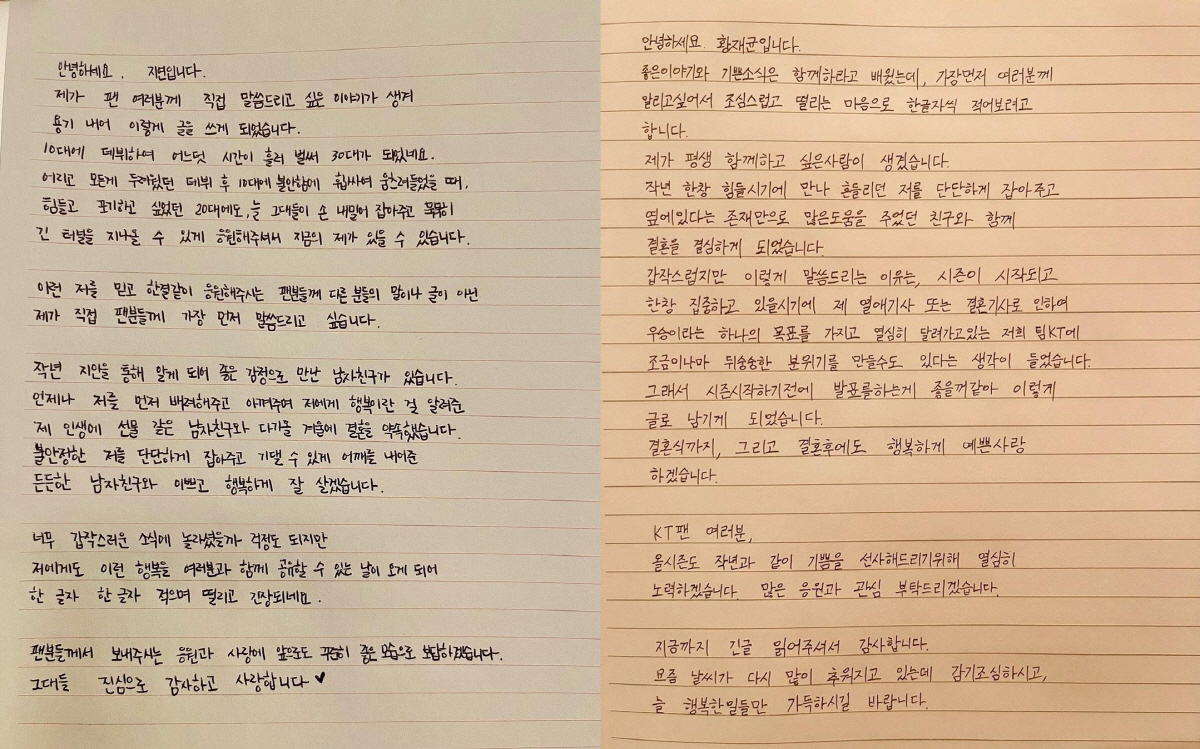 안녕하세요. 지연입니다.
제가 팬 여러분께 직접 말씀드리고 싶은 이야기가 생겨
용기 내어 이렇게 글을 쓰게 되었습니다.
10대에 데뷔하여 어느덧 시간이 흘러 벌써 30대가 되었네요.
어리고 모든게 두려웠던 데뷔 후 10대에 불안함에 휩싸여 움츠려들었을 때,
힘들고 포기하고 싶었던 20대에도, 늘 그대들이 손 내밀어 잡아주고 묵묵히
긴 터널을 지나올 수 있게 응원해주셔서 지금의 제가 있을 수 있습니다.
이런 저를 믿고 한결같이 응원해주시는 팬분들께 다른 분들의 말이나 글이 아닌
제가 직접 팬분들께 가장 먼저 말씀드리고 싶습니다.
작년 지인을 통해 알게 되어 좋은 감정으로 만난 남자친구가 있습니다.
언제나 저를 먼저 배려해주고 아껴주며 저에게 행복이란 걸 알려준
제 인생에 선물 같은 남자친구와 다가올 겨울에 결혼을 약속했습니다.
불안정한 저를 단단하게 잡아주고 기댈 수 있게 어깨를 내어준
든든한 남자친구와 이쁘고 행복하게 잘 살겠습니다.
너무 갑작스러운 소식에 놀라셨을까 걱정도 되지만
저에게도 이런 행복을 여러분과 함께 공유할 수 있는 날이 오게 되어
한 글자 한 글자 적으며 떨리고 긴장되네요.
팬분들께서 보내주시는 응원과 사랑에 앞으로도 꾸준히 좋은 모습으로 보답하겠습니다.
그대들 진심으로 감사하고 사랑합니다 ♥
안녕하세요. 황재균입니다.
좋은이야기와 기쁜소식은 함께하라고 배웠는데, 가장먼저 여러분께
알리고싶어서 조심스럽고 떨리는 마음으로 한글자씩 적어보려고
합니다.
제가 평생 함께하고 싶은사람이 생겼습니다.
작년 한창 힘들시기에 만나 흔들리던 저를 단단하게 잡아주고
옆에있다는 존재만으로 많은도움을 주었던 친구와 함께
결혼을 결심하게 되었습니다.
갑작스럽지만 이렇게 말씀드리는 이유는, 시즌이 시작되고
한창 집중하고 있을시기에 제 열애기사 또는 결혼기사로 인하여
우승이라는 하나의 목표를 가지고 열심히 달려가고있는 저희 팀KT에
조금이나마 뒤숭숭한 분위기를 만들수도 있다는 생각이 들었습니다.
그래서 시즌시작하기전에 발표를하는게 좋을꺼같아 이렇게
글로 남기게 되었습니다.
결혼식까지, 그리고 결혼후에도 행복하게 예쁜사랑
하겠습니다.
KT팬 여러분,
올시즌도 작년과 같이 기쁨을 선사해드리기위해 열심히
노력하겠습니다. 많은 응원과 관심 부탁드리겠습니다.
지금까지 긴글 읽어주셔서 감사합니다.
요즘 날씨가 다시 많이 추워지고 있는데 감기조심하시고,
늘 행복한일들만 가득하시길 바랍니다.